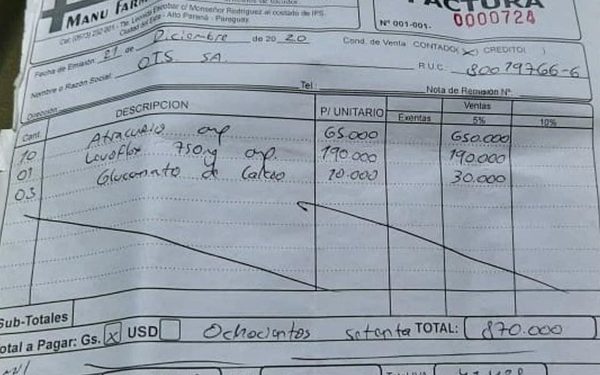 MANU FAR
FACTURA
Tte. Escobar c/ Monseñor Rodriguez al costado de IPS.
Ciudad del Este - Alto Paraná - Paraguay
Nº 001-001- 0000724
Fecha de Emisión: 21 de Diciembre de 20 20 Cond. de Venta CONTADO (x) CREDITO( )
Nombre o Razón Social: OTS SA. R.U.C. 80079766-6
Dirección: Tel.: Nota de Remisión Nº:
Cant. DESCRIPCION P/ UNITARIO Ventas
Exentas 5% 10%
10 Atracurio amp 65.000 650.000
01 Levoflox 750mg amp. 190.000 190.000
03 Gluconato de Calcio 10.000 30.000
Sub-Totales
Total a Pagar: Gs. x USD Ochocientos setenta TOTAL: 870.000